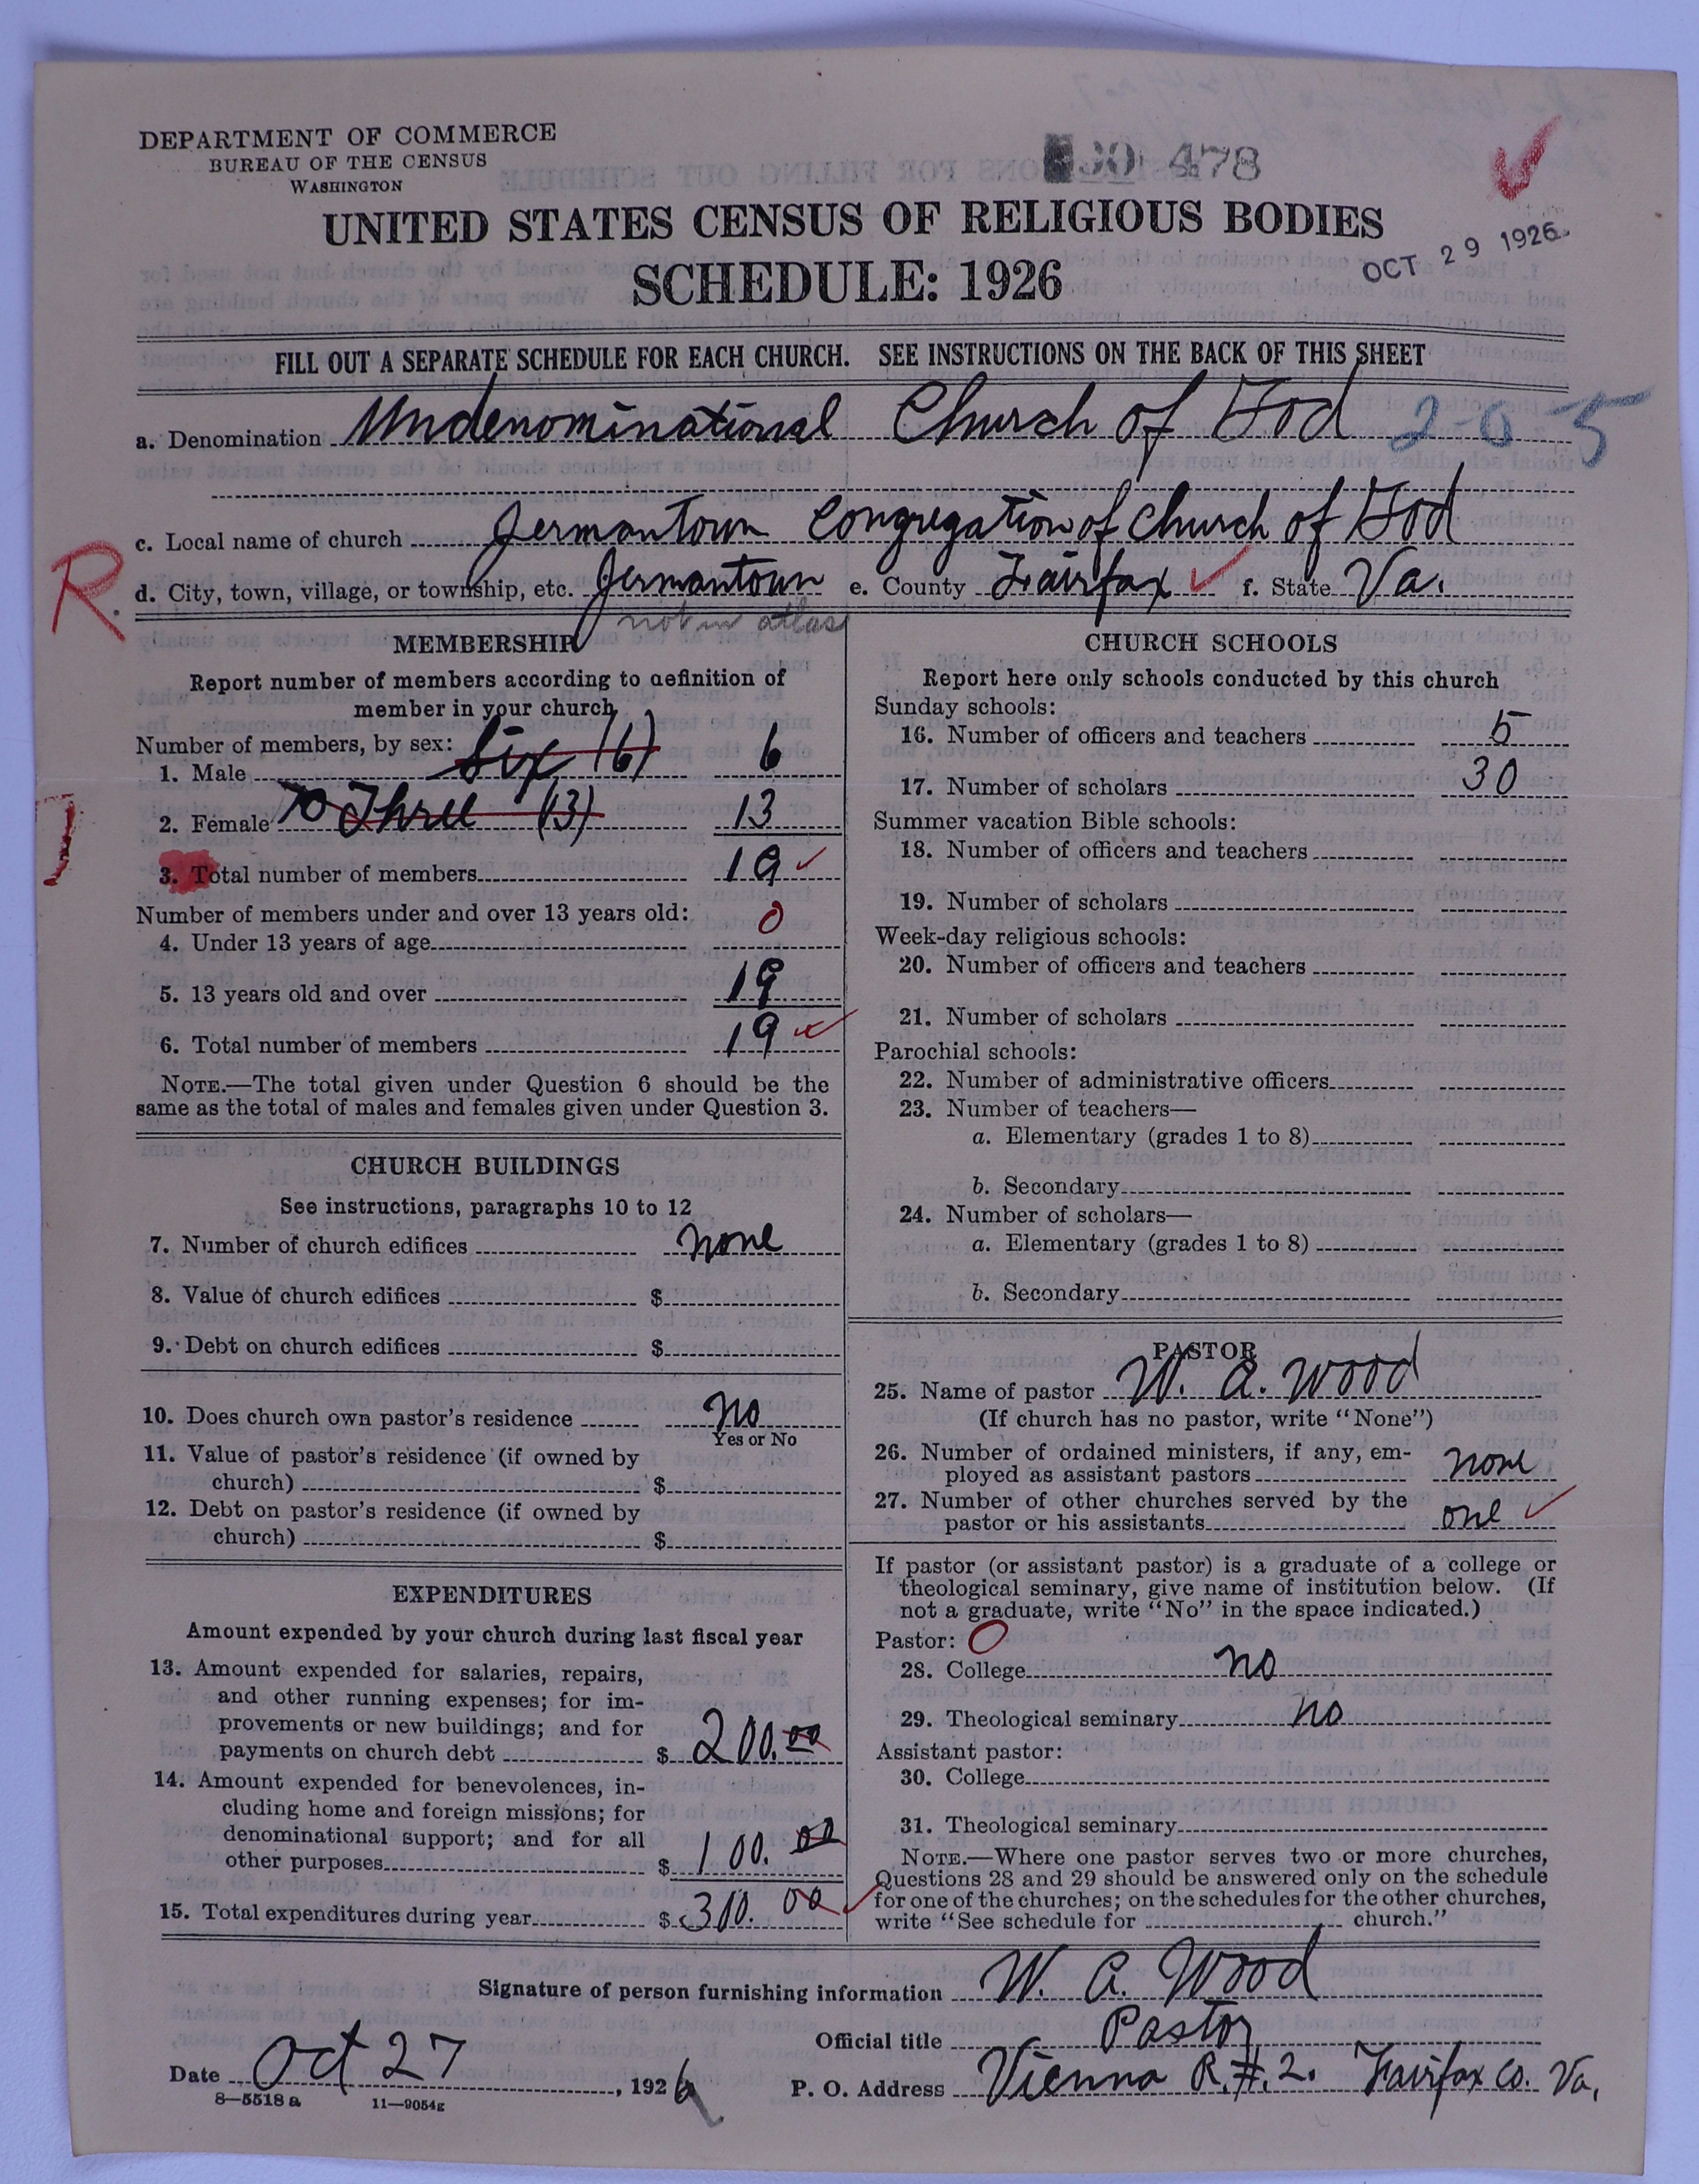 DEPARTMENT OF COMMERCE
BUREAU OF THE CENSUS
WASHINGTON
30 478
UNITED STATES CENSUS OF RELIGIOUS BODIES
SCHEDULE: 1926
OCT 29 1926
FILL OUT A SEPARATE SCHEDULE FOR EACH CHURCH. SEE INSTRUCTIONS ON THE BACK OF THIS SHEET
a. Denomination Undenominational Church of God 2-0-5
c. Local name of church Jermantown Congregation of Church of God
R.
d. City, town, village, or township, etc. Jermantown e. County Fairfax f. State Va.
not in atlas
MEMBERSHIP
Report number of members according to definition of
member in your church
Number of members, by sex:
1. Male Six (6) 6
2. Female Three (13) 13
3. Total number of members 19
Number of members under and over 13 years old:
4. Under 13 years of age 0
5. 13 years old and over 19
6. Total number of members 19
NOTE.—The total given under Question 6 should be the
same as the total of males and females given under Question 3.
CHURCH BUILDINGS
See instructions, paragraphs 10 to 12
7. Number of church edifices none
8. Value of church edifices $
9. Debt on church edifices $
10. Does church own pastor's residence no
Yes or No
11. Value of pastor's residence (if owned by
church) $
12. Debt on pastor's residence (if owned by
church) $
EXPENDITURES
Amount expended by your church during last fiscal year
13. Amount expended for salaries, repairs,
and other running expenses; for im-
provements or new buildings; and for
payments on church debt $ 200.00
14. Amount expended for benevolences, in-
cluding home and foreign missions; for
denominational support; and for all
other purposes $ 100.00
15. Total expenditures during year $ 300.00
CHURCH SCHOOLS
Report here only schools conducted by this church
Sunday schools:
16. Number of officers and teachers 5
17. Number of scholars 30
Summer vacation Bible schools:
18. Number of officers and teachers
19. Number of scholars
Week-day religious schools:
20. Number of officers and teachers
21. Number of scholars
Parochial schools:
22. Number of administrative officers
23. Number of teachers—
a. Elementary (grades 1 to 8)
b. Secondary
24. Number of scholars—
a. Elementary (grades 1 to 8)
b. Secondary
PASTOR
25. Name of pastor W. A. Wood
(If church has no pastor, write "None")
26. Number of ordained ministers, if any, em-
ployed as assistant pastors none
27. Number of other churches served by the
pastor or his assistants one
If pastor (or assistant pastor) is a graduate of a college or
theological seminary, give name of institution below. (If
not a graduate, write "No" in the space indicated.)
Pastor: O
28. College no
29. Theological seminary no
Assistant pastor:
30. College
31. Theological seminary
NOTE.—Where one pastor serves two or more churches,
Questions 28 and 29 should be answered only on the schedule
for one of the churches; on the schedules for the other churches,
write "See schedule for church."
Signature of person furnishing information W. A. Wood
Official title Pastor
Date Oct 27, 1926
P. O. Address Vienna R.#.2. Fairfax Co. Va.
8—5518 a 11—9054g